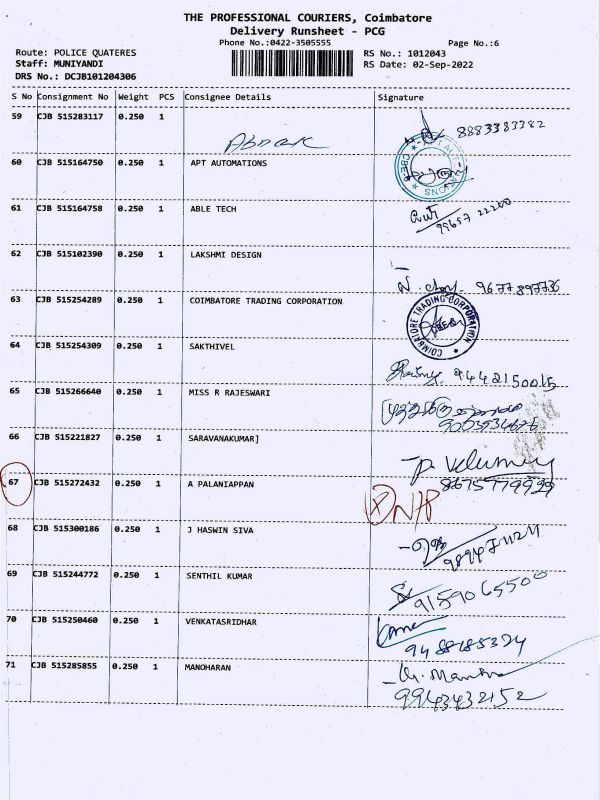 THE PROFESSIONAL COURIERS, Coimbatore
Delivery Runsheet - PCG
Phone No.:0422-3505555 Page No.:6
Route: POLICE QUATERES RS No.: 1012043
Staff: MUNIYANDI RS Date: 02-Sep-2022
DRS No.: DCJB101204306
S No Consignment No Weight PCS Consignee Details Signature
59 CJB 515283117 0.250 1 8883383382
60 CJB 515164750 0.250 1 APT AUTOMATIONS
61 CJB 515164758 0.250 1 ABLE TECH
99657 22200
62 CJB 515102390 0.250 1 LAKSHMI DESIGN
9677897736
63 CJB 515254289 0.250 1 COIMBATORE TRADING CORPORATION
COIMBATORE TRADING CORPORATION
64 CJB 515254309 0.250 1 SAKTHIVEL
65 CJB 515266640 0.250 1 MISS R RAJESWARI
66 CJB 515221827 0.250 1 SARAVANAKUMAR]
P. Velumny
67 CJB 515272432 0.250 1 A PALANIAPPAN
8675779929
68 CJB 515300186 0.250 1 J HASWIN SIVA
69 CJB 515244772 0.250 1 SENTHIL KUMAR
9159065500
70 CJB 515250460 0.250 1 VENKATASRIDHAR
71 CJB 515285855 0.250 1 MANOHARAN
9943432152